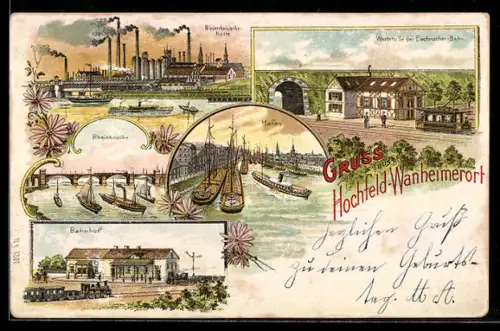 Niederrheinische-
Hütte
Wartehalle der Electrischen-Bahn.
Rheinbrücke
Hafen
Gruss
Hochfeld-Wanheimerort
Bahnhof
Herzlichen Gruß
zu deinen Geburts-
tag. M. A.